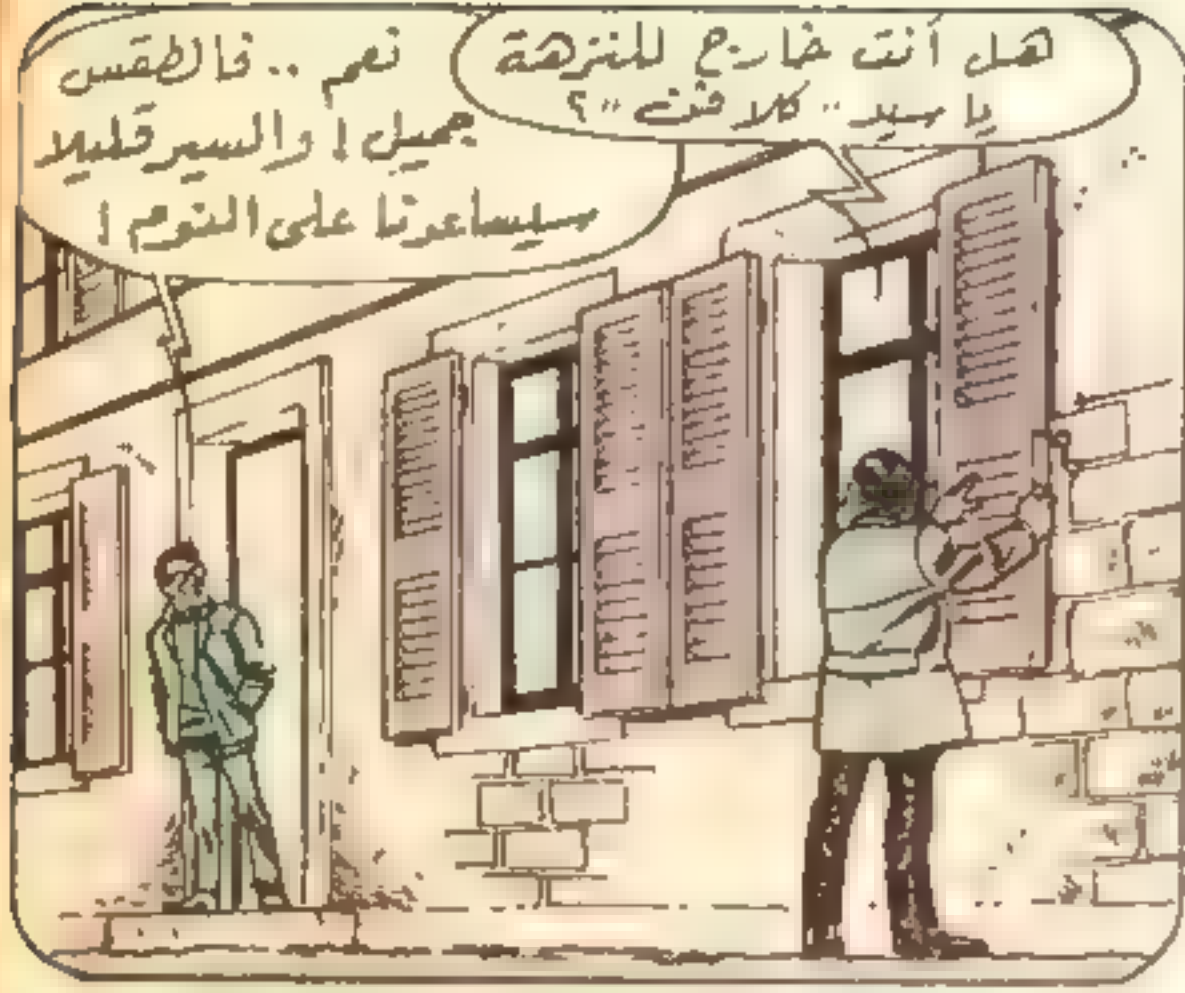 هل أنت خارج للنزهة
يا سيد ,, كلافتن ,, ؟
نعم .. فالطقس
جميل ! والسير قليلا
سيساعدنا على النوم !